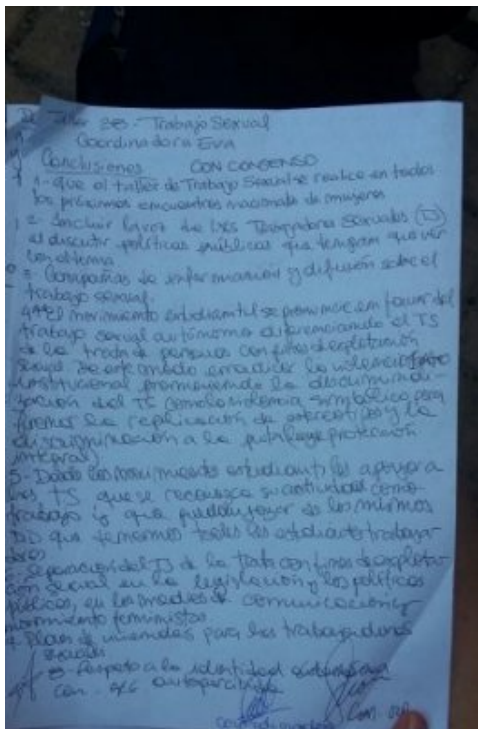 Taller 38 - Trabajo Sexual
Coordinadora Eva
Conclusiones CON CONSENSO
1- que el taller de Trabajo Sexual se realice en todos
los próximos encuentros nacionals de mujeres
2- Incluir la voz de lxs Trabajadorxs Sexuales
al discutir políticas públicas que tengan que ver
con el tema
3- Campañas de información y difusión sobre el
trabajo sexual.
4- el movimiento estudiantil se pronuncie en favor del
trabajo sexual autónomo diferenciando el TS
de la trata de personas con fines de explotación
sexual de este modo erradicar la violencia
institucional promoviendo la
del TS como violencia simbólica
la replicación de estereotipos y la
discriminación a la
integral)
5- Desde los movimientos estudiantiles apoyar a
lxs TS que se reconozca su actividad como
trabajo y que puedan gozar de los mismos
que tenemos todxs lxs estudiantes trabaja-
dores
Separación del TS de la Trata con fines de explota-
ción sexual en la legislación y las políticas
públicas, en los medios de comunicación y
movimiento feministas
Planes de viviendas para las trabajadoras
sexuales
8- Respeto a la identidad
autopercibida